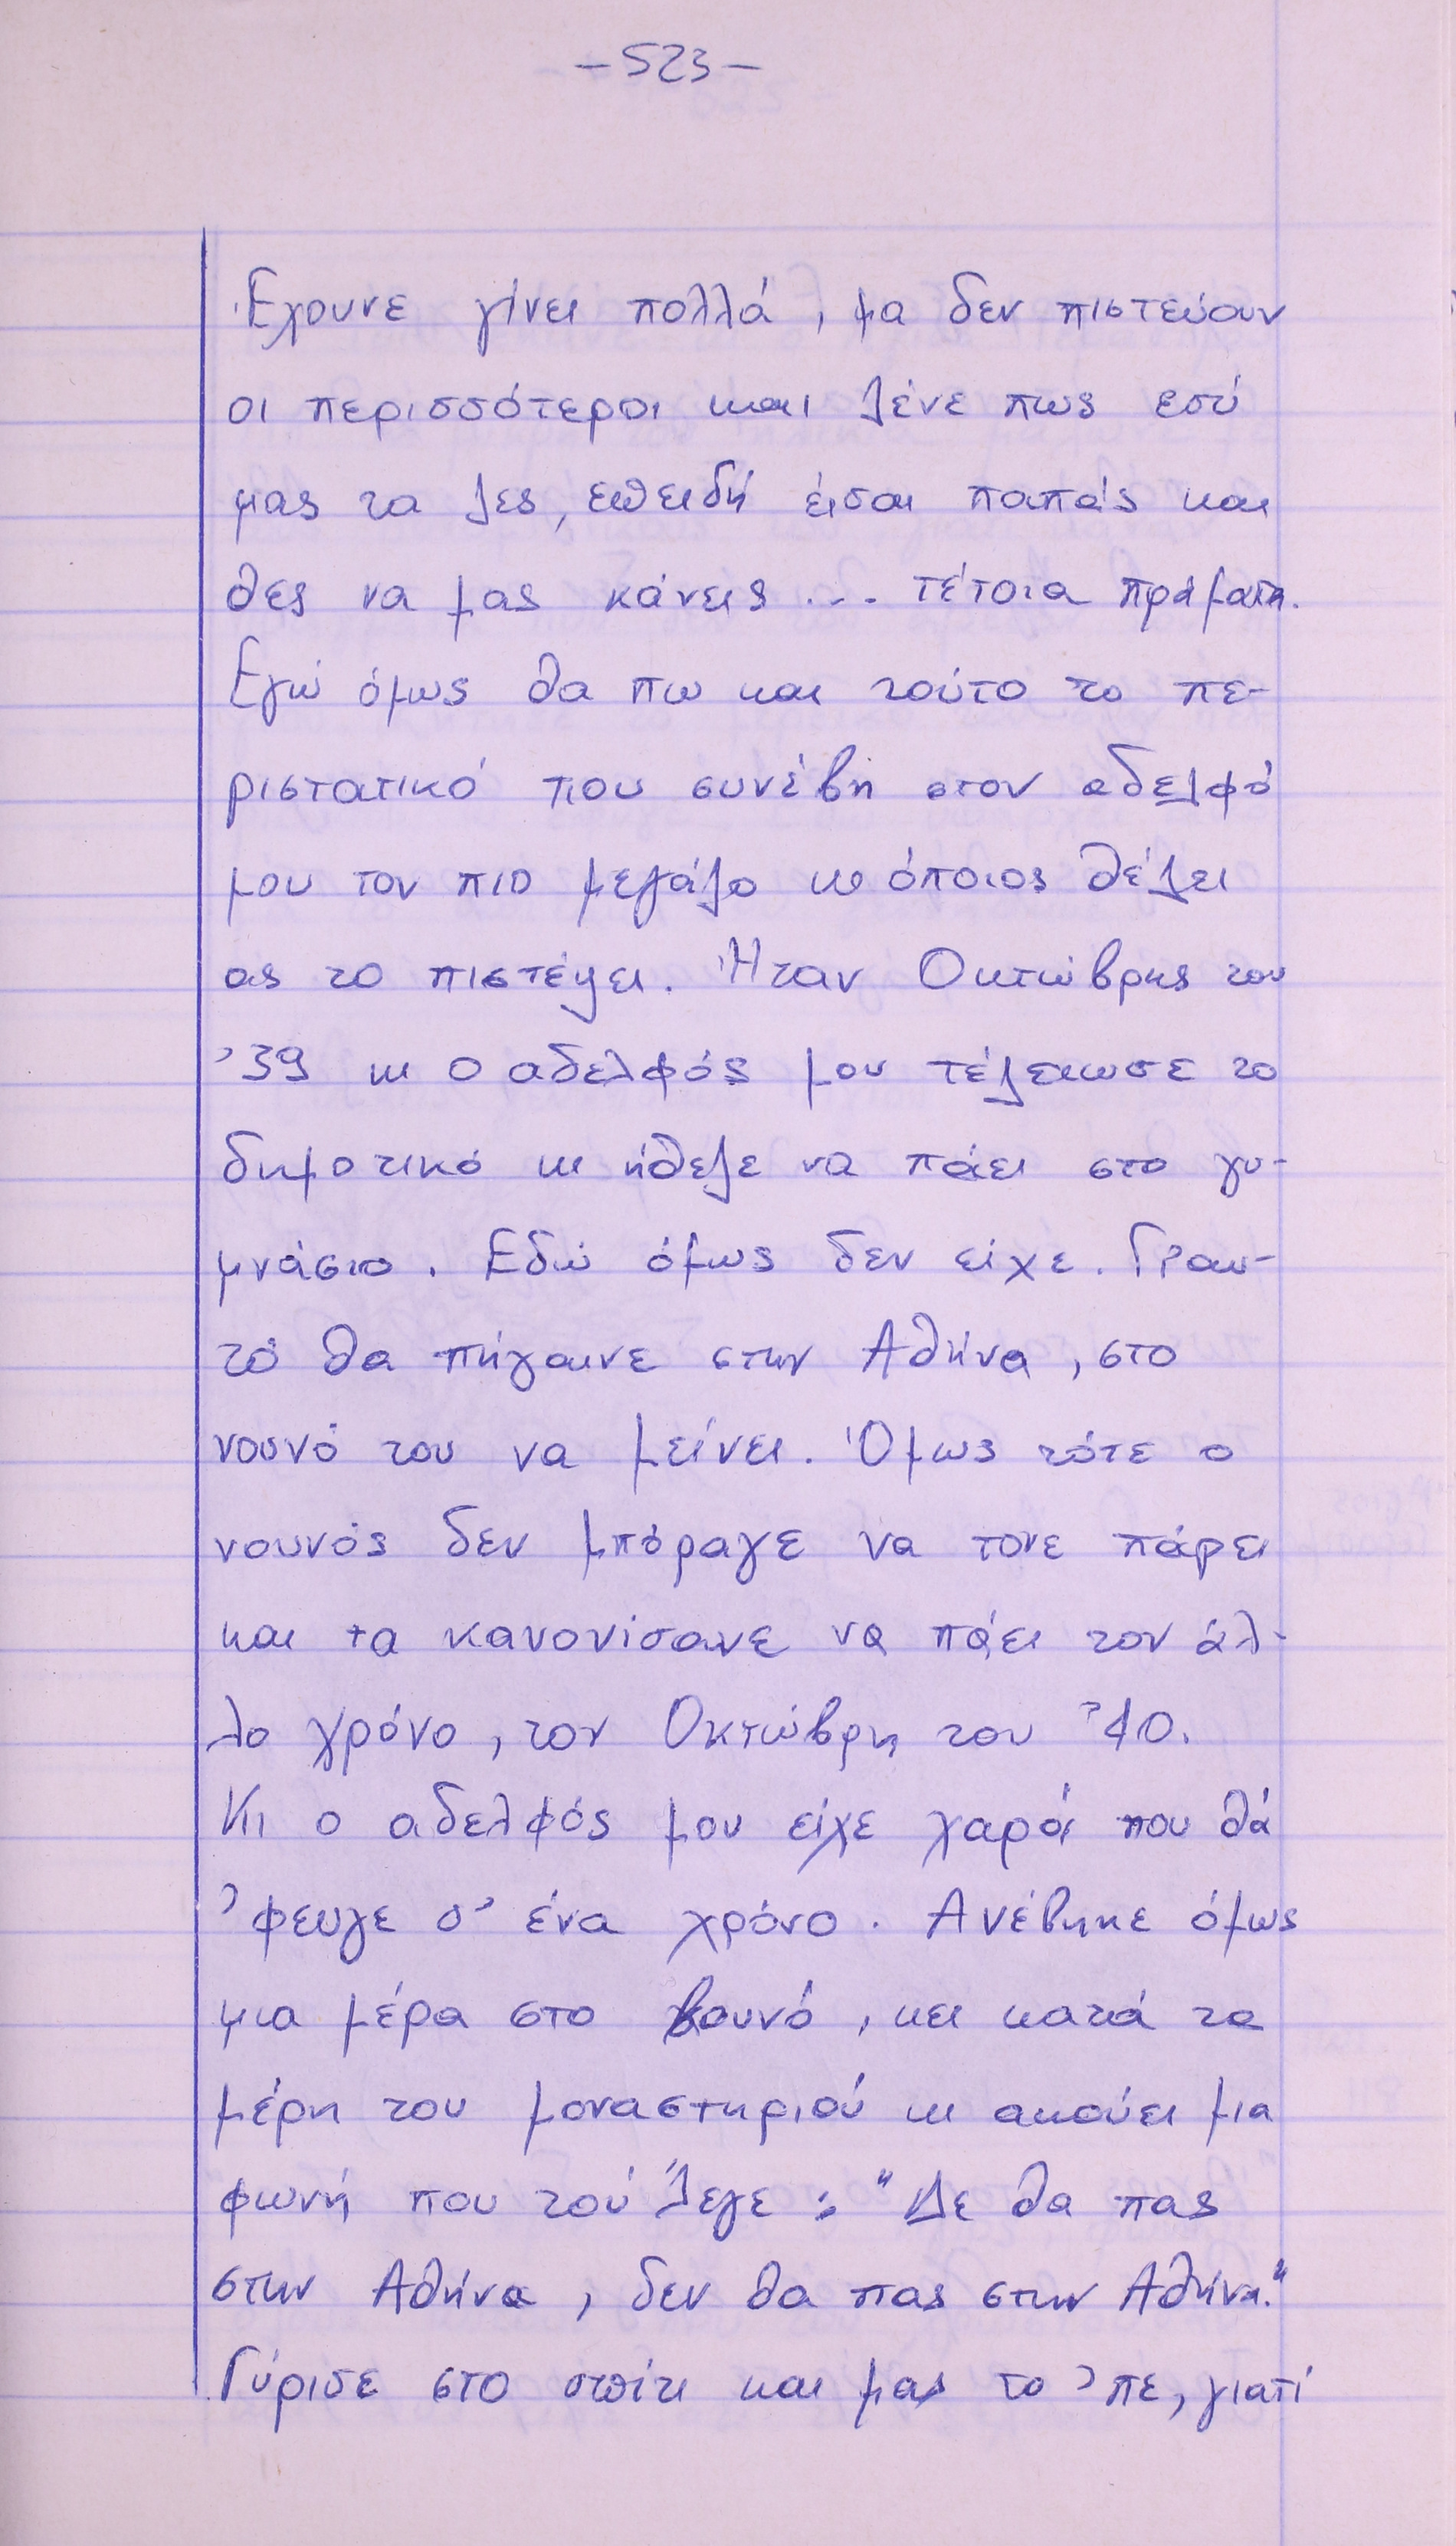 -523-
Έχουνε γίνει πολλά, μα δεν πιστεύουν
οι περισσότεροι και λένε πως εσύ
μας τα λες, επειδή είσαι παπάς και
θες να μας κάνεις ... τέτοια πράματα.
Εγώ όμως θα πω και τούτο το πε-
ριστατικό που συνέβη στον αδελφό
μου τον πιο μεγάλο κι όποιος θέλει
ας το πιστέψει. Ήταν Οκτώβρης του
'39 κι ο αδελφός μου τέλειωσε το
δημοτικό κι ήθελε να πάει στο γυ-
μνάσιο. Εδώ όμως δεν είχε. Γιαυ-
τό θα πήγαινε στην Αθήνα, στο
νουνό του να μείνει. Όμως τότε ο
νουνός δεν μπόραγε να τονε πάρει
και τα κανονίσανε να πάει τον άλ-
λο χρόνο, τον Οκτώβρη του '40.
Κι ο αδελφός μου είχε χαρά που θά
'φευγε σ' ένα χρόνο. Ανέβηκε όμως
μια μέρα στο βουνό, κει κατά τα
μέρη του μοναστηριού κι ακούει μια
φωνή που τού λεγε: "Δε θα πας
στην Αθήνα, δεν θα πας στην Αθήνα."
Γύρισε στο σπίτι και μας το 'πε, γιατί